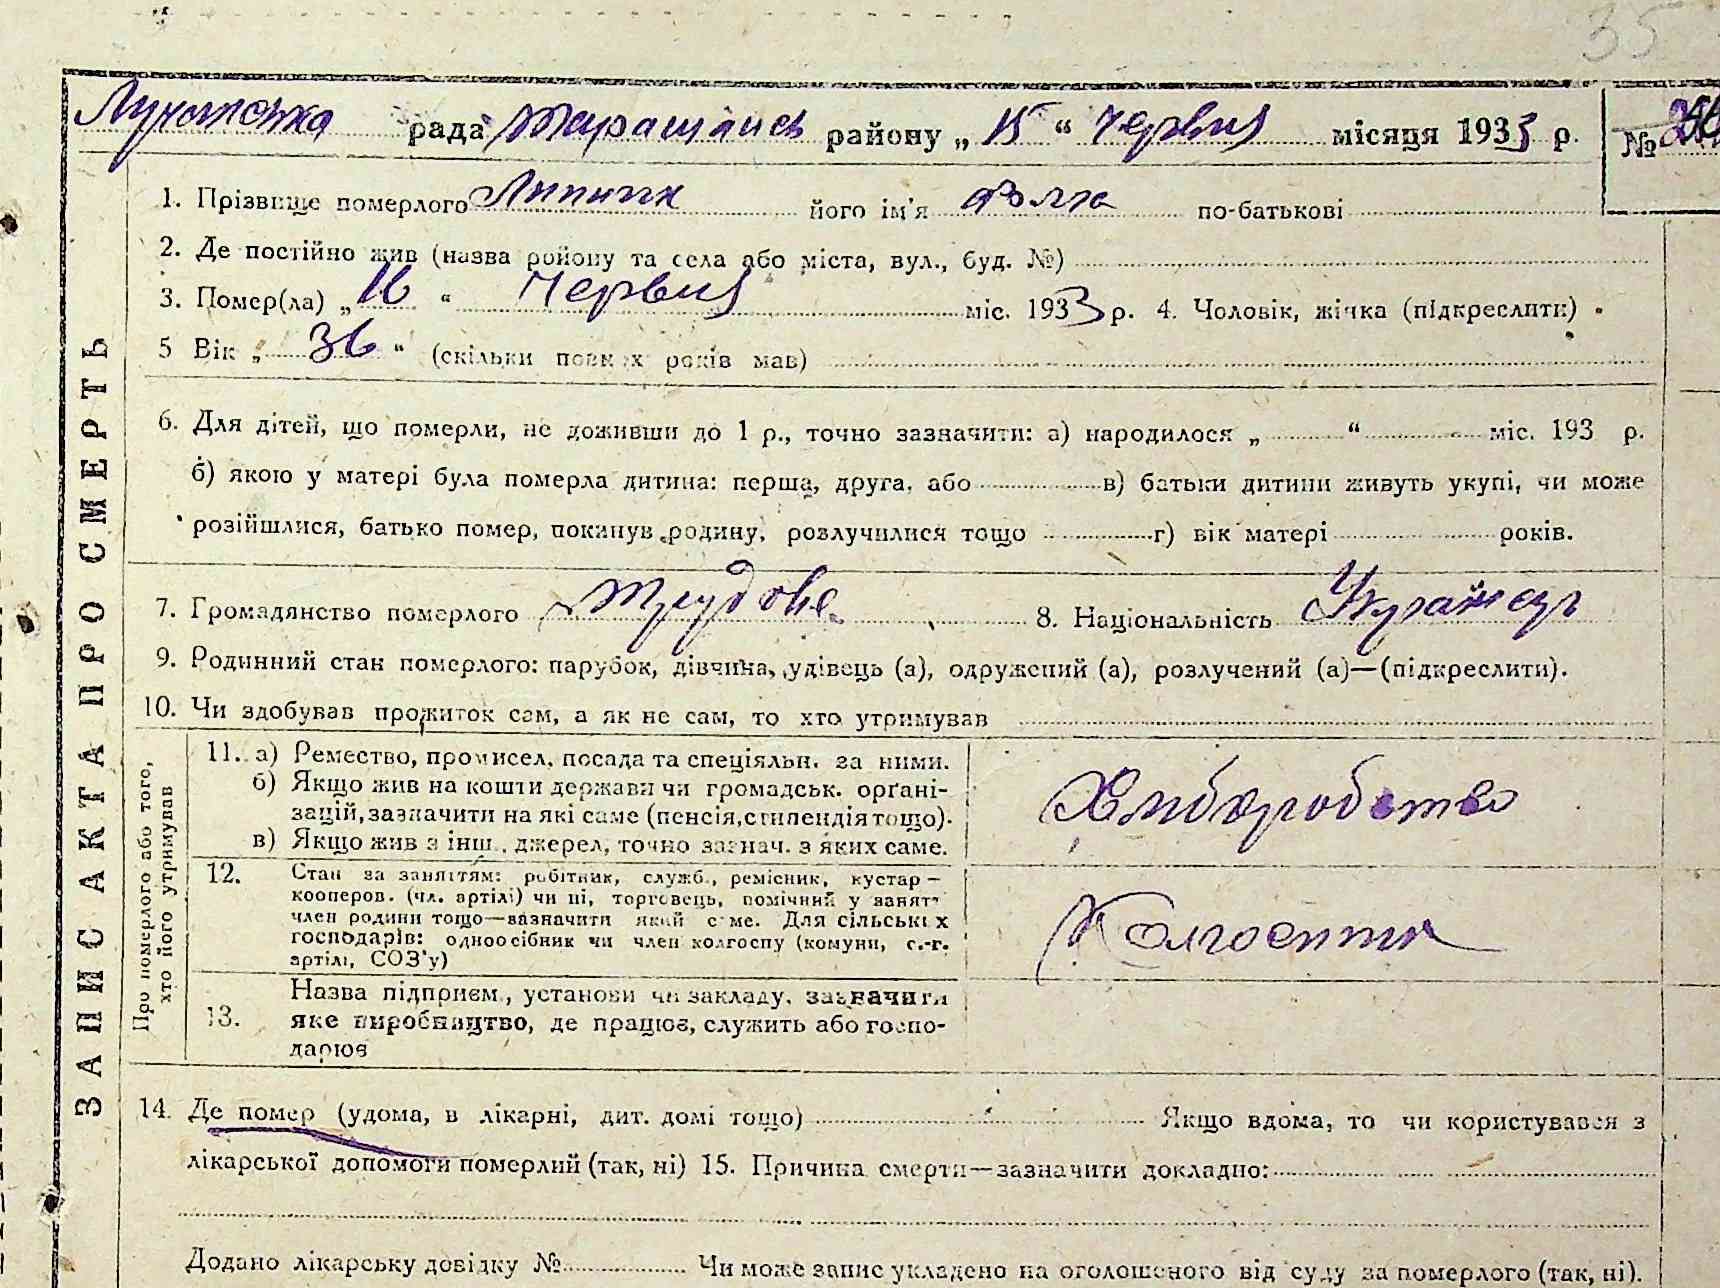 35
Лукянівка рада Таращанск району „ 15 “ Червня місяця 1933 р. №
1. Прізвище померлого його ім'я по-батькові
2. Де постійно жив (назва району та села або міста, вул., буд. №)
3. Помер(ла) „ 16 “ Червня міс. 1933 р. 4. Чоловік, жінка (підкреслити)
5 Вік „ 36 “ (скільки повних років мав)
6. Для дітей, що померли, не доживши до 1 р., точно зазначити: а) народилося „ “ міс. 193 р.
б) якою у матері була померла дитина: перша, друга, або в) батьки дитини живуть укупі, чи може
розійшлися, батько помер, покинув родину, розлучилися тощо г) вік матері років.
7. Громадянство померлого Трудове 8. Національність Українец
9. Родинний стан померлого: парубок, дівчина, удівець (а), одружений (а), розлучений (а)—(підкреслити).
10. Чи здобував прожиток сам, а як не сам, то хто утримував
ЗАПИС АКТА ПРО СМЕРТЬ
Про померлого або того,
хто його утримував
11. а) Ремество, промисел, посада та спеціяльн. за ними.
б) Якщо жив на кошти держави чи громадськ. орґані-
зацій, зазначити на які саме (пенсія, стипендія тощо).
в) Якщо жив з інш. джерел, точно зазнач. з яких саме.
Хліборобство
12. Стан за заняттям: робітник, служб., ремісник, кустар—
кооперов. (чл. артілі) чи ні, торговець, помічний у занят.
член родини тощо—зазначити який саме. Для сільських
господарів: одноосібник чи член колгоспу (комуни, с.-г.
артілі, СОЗ'у)
Колгоспник
13. Назва підприєм., установи чи закладу, зазначити
яке виробництво, де працює, служить або госпо-
дарює
14. Де помер (удома, в лікарні, дит. домі тощо) Якщо вдома, то чи користувався з
лікарської допомоги померлий (так, ні) 15. Причина смерти—зазначити докладно:
Додано лікарську довідку № Чи може запис укладено на оголошеного від суду за померлого (так, ні).